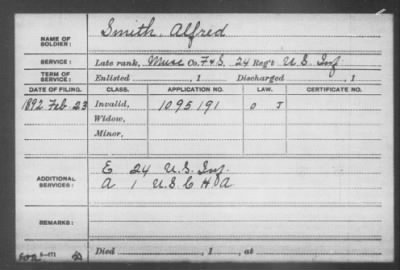 NAME OF SOLDIER: Smith, Alfred
SERVICE: Late rank, Musc Co. F&S, 24 Reg't U.S. Inf
TERM OF SERVICE: Enlisted , 1 Discharged , 1
DATE OF FILING. CLASS. APPLICATION NO. LAW. CERTIFICATE NO.
1892 Feb 23 Invalid, 1095191 O J
Widow,
Minor,
ADDITIONAL SERVICES: E 24 U.S. Inf.
A 1 U.S.C.H.A
REMARKS:
Died , 1 , at